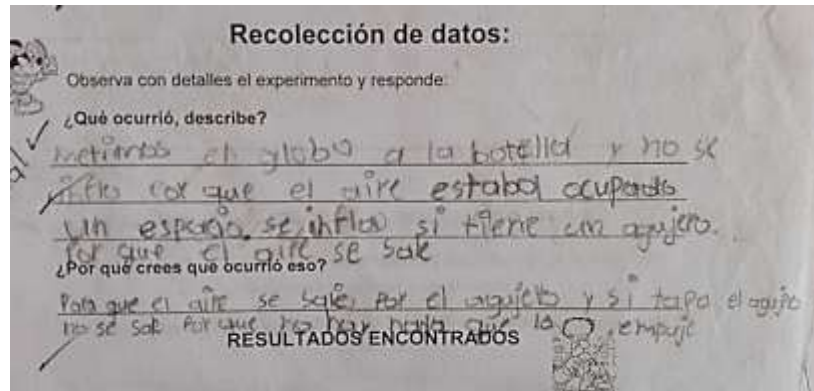 Recolección de datos:
Observa con detalles el experimento y responde:
¿Qué ocurrió, describe?
metimos el globo a la botella y no se
inflo por que el aire estaba ocupando
un espacio. se infla si tiene un agujero.
por que el aire se sale
¿Por qué crees que ocurrió eso?
Para que el aire se sale, por el agujero y si tapo el agujero
no se sale Por que no hay nada que lo empuje
RESULTADOS ENCONTRADOS